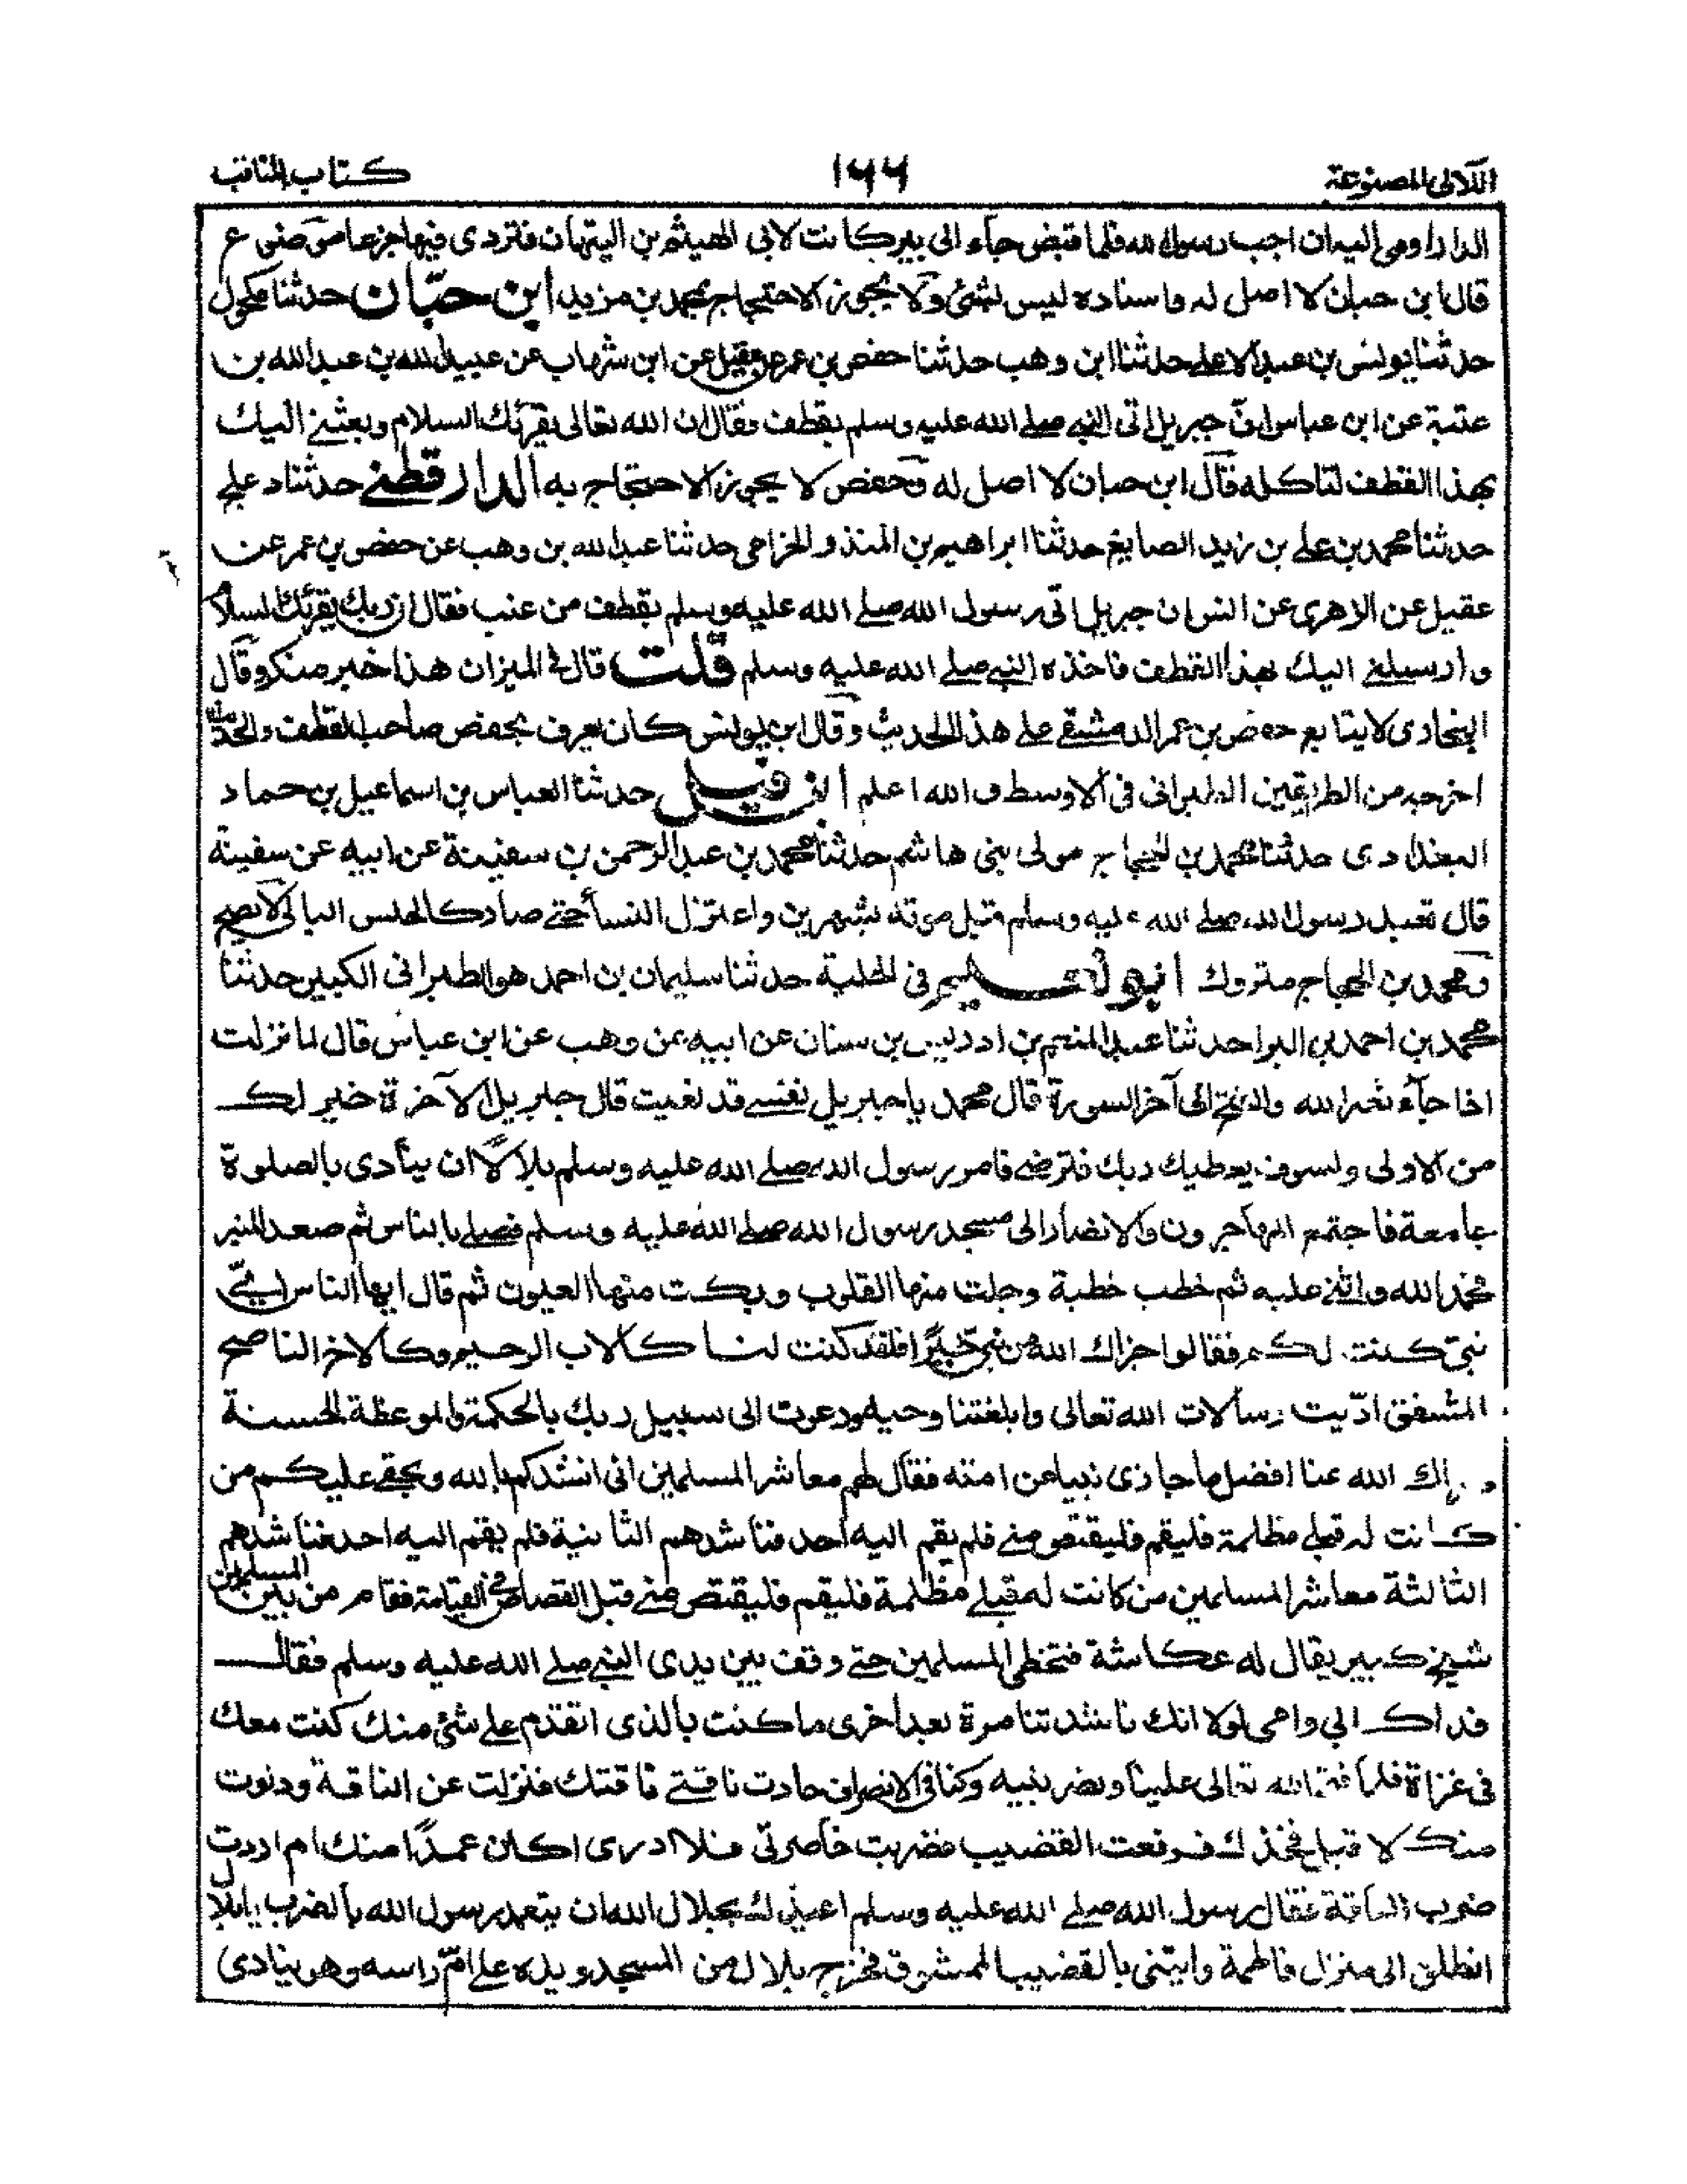 اللآلى المصنوعة ١٦٦ كتاب المناقب
الدار اومى اليه ان اجب رسول الله فلما قبض جاء الى بير كانت لابى الهيثم بن التيهان فتردى فيها جزعا موضوع
قال ابن حبان لا اصل له واسناده ليس بشئ ولا يجوز الاحتجاج بمحمد بن مزيد ابن حبّان حدثنا مكحول
حدثنا يونس بن عبد الاعلى حدثنا ابن وهب حدثنا حفص بن عمر عن عقيل عن ابن شهاب عن عبيد الله بن عبد الله بن
عتبة عن ابن عباس انّ جبريل اتى النبي صلے الله عليه وسلم بقطف فقال ان الله تعالى يقرئك السلام وبعثنے اليك
بهذا القطف لتاكله قال ابن حبان لا اصل له وحفص لا يجوز الاحتجاج به الدارقطنے حدثنا دعلج
حدثنا محمد بن علے بن زيد الصايغ حدثنا ابراهيم بن المنذر الحزامى حدثنا عبد الله بن وهب عن حفص بن عمر عن
عقيل عن الزهرى عن انس ان جبريل اتى رسول الله صلے الله عليه وسلم بقطف من عنب فقال ان ربك يقرئك السلام
وارسلنے اليك بهذا القطف فاخذه النبے صلے الله عليه وسلم قلت قال فى الميزان هذا خبر منكر وقال
البخارى لا يتابع حفص بن عمر الدمشقے علے هذا الحديث وقال ابن يونس كان يعرف بحفص صاحب القطف والحديث
اخرجه من الطريقين الطبرانى فى الاوسط والله اعلم حدثنا العباس بن اسماعيل بن حماد
البغدادى حدثنا محمد بن الحجاج مولى بنى هاشم حدثنا محمد بن عبد الرحمن بن سفينة عن ابيه عن سفينة
قال تعبد رسول الله صلے الله عليه وسلم قبل موته بشهرين واعتزل النساء حتے صار كالحلس البالى لا يصح
ومحمد بن الحجاج متروك ابو نعيم فى الحلية حدثنا سليمان بن احمد هو الطبرانى الكبير حدثنا
محمد بن احمد بن البرا حدثنا عبد المنعم بن ادريس بن سنان عن ابيه عن وهب عن ابن عباس قال لما نزلت
اذا جآء نصر الله والفتح الى آخر السورة قال محمد يا جبريل نفسے قد نعيت قال جبريل الآخرة خير لك
من الاولى ولسوف يعطيك ربك فترضے فامر رسول الله صلے الله عليه وسلم بلالاً ان ينادى بالصلوة
جامعة فاجتمع المهاجرون والانصار الى مسجد رسول الله صلے الله عليه وسلم فصلے بالناس ثم صعد المنبر
فحمد الله واثنے عليه ثم خطب خطبة وجلت منها القلوب وبكت منها العيون ثم قال ايها الناس اىّ
نبىّ كنت لكم فقالوا جزاك الله من نبىّ خيرًا فلقد كنت لنا كالاب الرحيم وكالاخ الناصح
المشفق ادّيت رسالات الله تعالى وابلغتنا وحيه ودعوت الى سبيل ربك بالحكمة والموعظة الحسنة
الله عنا افضل ما جازى نبيا عن امته فقال لهم معاشر المسلمين انى انشدكم بالله وبحقے عليكم من
كانت له قبلے مظلمة فليقم فليقتص منے فلم يقم اليه احد فناشدهم الثانية فلم يقم اليه احد فناشدهم
الثالثة معاشر المسلمين من كانت له قبلے مظلمة فليقم فليقتص منے قبل القصاص فى القيامة فقام من بين المسلمين
شيخ كبير يقال له عكاشة فتخطى المسلمين حتے وقف بين يدى النبے صلے الله عليه وسلم فقال
فداك ابى وامى لولا انك ناشدتنا مرة بعد اخرى ما كنت بالذى اتقدم علے شئ منك كنت معك
فى غزاة فلما فتح الله تعالى علينا ونصر نبيه وكنا فى الانصراف حادت ناقتے ناقتك فنزلت عن الناقة ودنوت
منك لا قبل فخذك فرفعت القضيب فضربت خاصرتى فلا ادرى اكان عمدًا منك ام اردت
ضرب الناقة فقال رسول الله صلے الله عليه وسلم اعيذك بجلال الله ان يتعمد رسول الله بالضرب يا بلال
انطلق الى منزل فاطمة وايتنى بالقضيب الممشوق فخرج بلال من المسجد ويده علے امّ راسه وهو ينادى